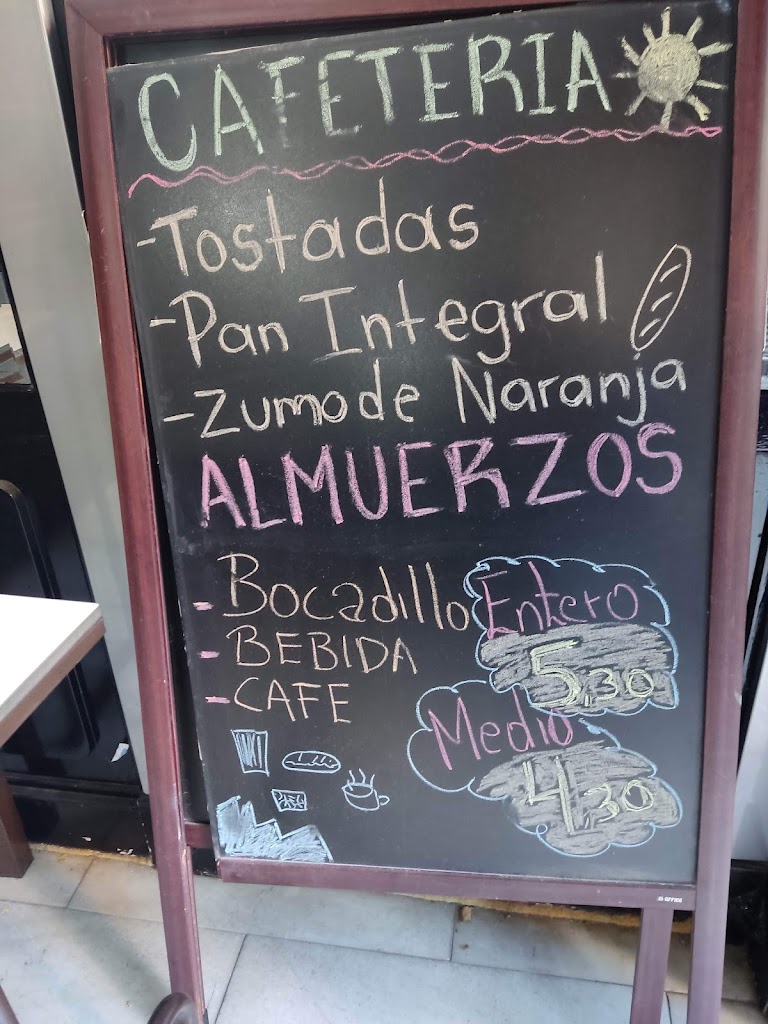 CAFETERIA
-Tostadas
-Pan Integral
-Zumo de Naranja
ALMUERZOS
-Bocadillo
-BEBIDA
-CAFE
Entero
5,30
Medio
4,30